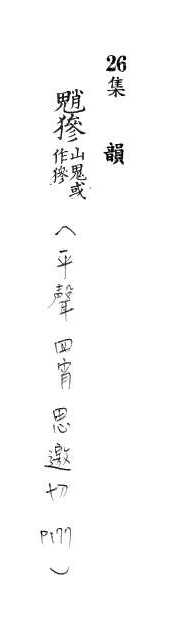 26 集韻
魈㺑山鬼或作㺑（平聲 四宵 思邀切 P177）